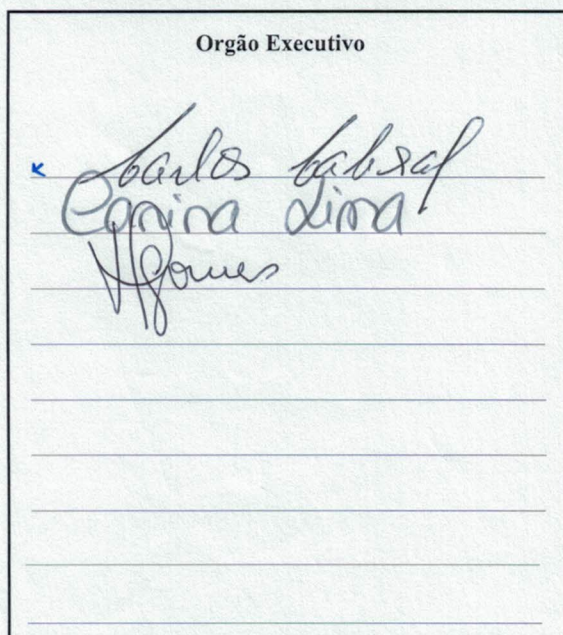 Orgão Executivo
Carlos Cabral
Carina Lima
Gomes